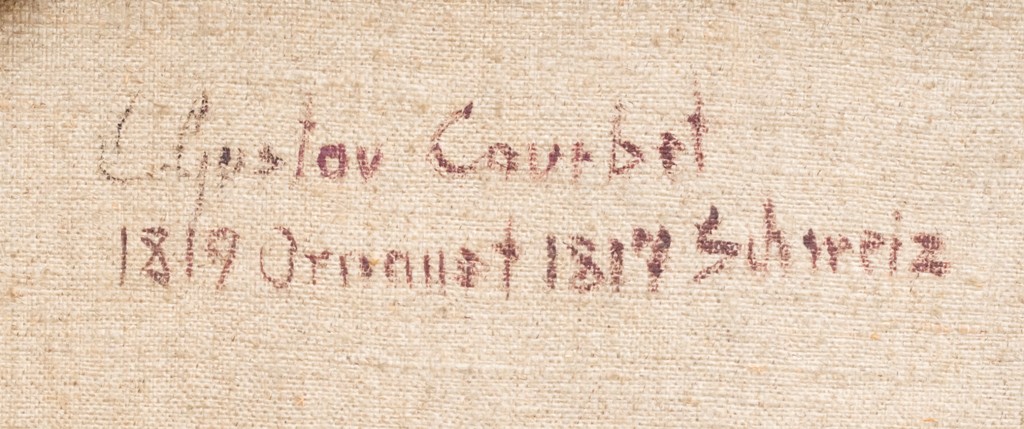 Gustav Courbet
1819 Ornauet 1817 Schweiz